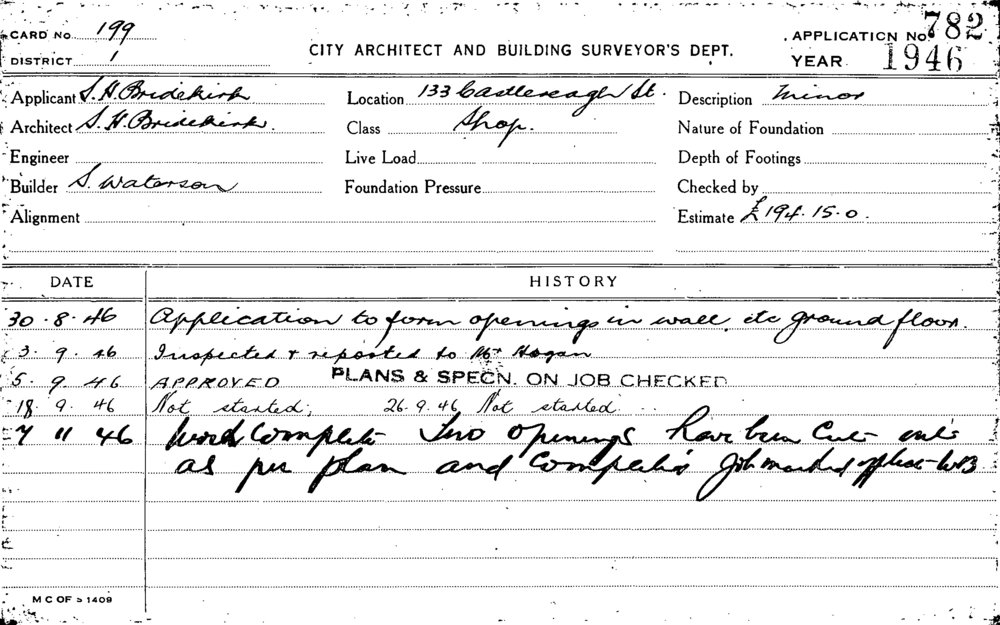 CARD No. 199
APPLICATION No. 782
DISTRICT 1
CITY ARCHITECT AND BUILDING SURVEYOR'S DEPT.
YEAR 1946
Applicant S. H. Bridekirk Location 133 Castlereagh St. Description Minor
Architect S. H. Bridekirk. Class Shop. Nature of Foundation
Engineer Live Load Depth of Footings
Builder S. Waterson Foundation Pressure Checked by
Alignment Estimate £194.15.0.
DATE HISTORY
30.8.46 Application to form openings in wall, etc ground floor.
3.9.46 Inspected & reported to Mr Hogan
5.9.46 APPROVED PLANS & SPECN. ON JOB CHECKED
18.9.46 Not started; 26.9.46 Not started
7 11 46 Work Complete Two Openings have been Cut
as per plan and Job marked off
M C OF S 1409